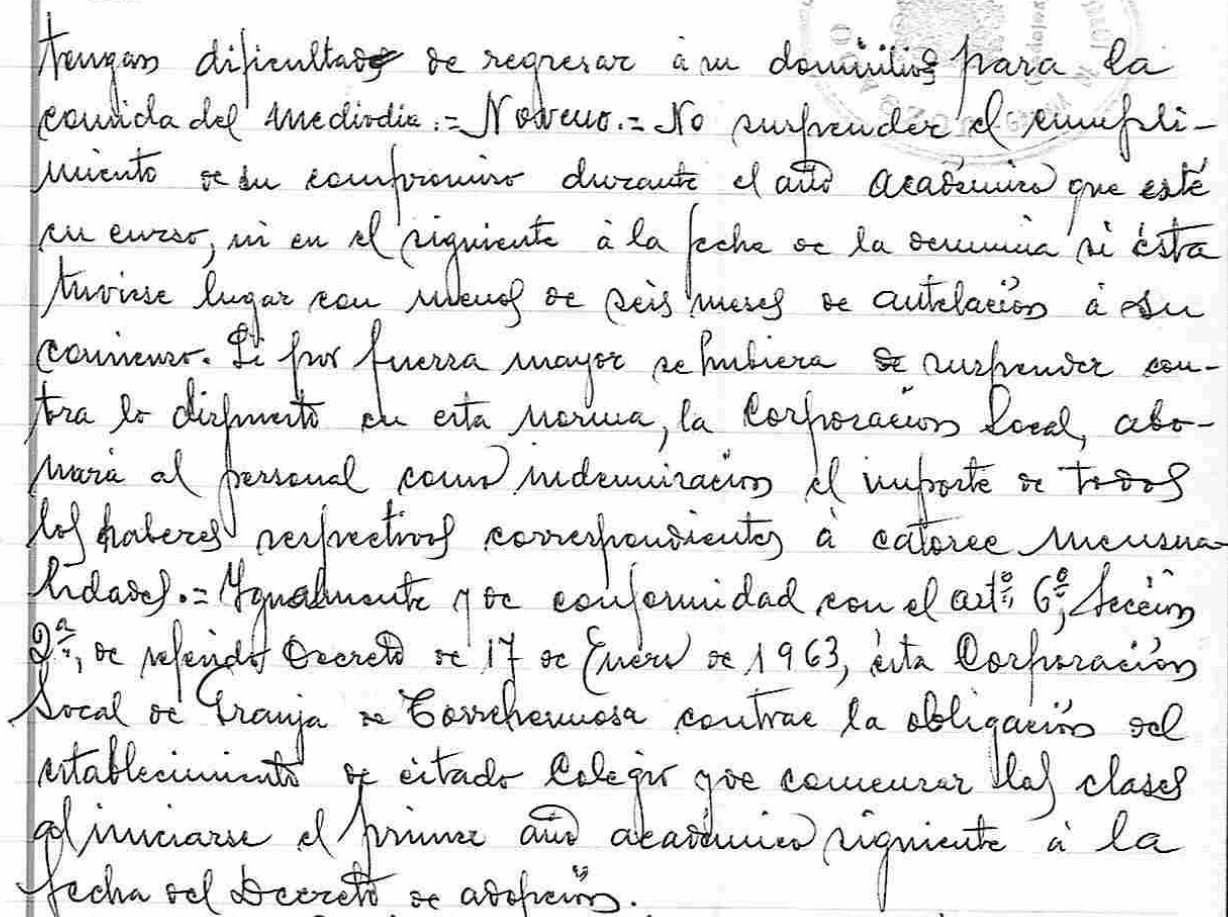 tengan dificultades de regresar á su domicilio para la
comida del mediodia.= Noveno.= No suspender el cumpli-
miento de su compromiso durante el año académico que esté
en curso, ni en el siguiente á la fecha de la denuncia si ésta
tuviese lugar con menos de seis meses de antelación á su
comienzo. Si por fuerza mayor se hubiera de suspender con-
tra lo dispuesto en esta norma, la Corporación Local, abo-
nará al personal como indemnización el importe de todos
los haberes respectivos correspondientes á catorce mensua-
lidades.= Igualmente y de conformidad con el artº 6º, Sección
2ª, de referido Decreto de 17 de Enero de 1963, ésta Corporación
Local de Granja de Torrehermosa contrae la obligación del
establecimiento de citado Colegio y de comenzar las clases
al iniciarse el primer año académico siguiente á la
fecha del Decreto de adopción.